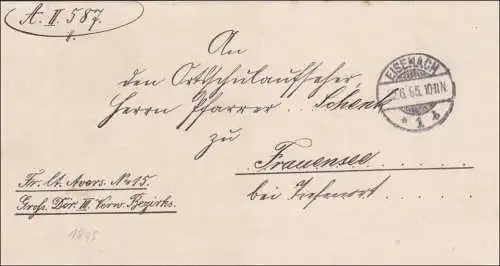 A. II. 587.
An
den Ortsschulaufseher,
Herrn Pfarrer . . Schenk
zu
Frauensee . . . . .
bei Tiefenort . . .
EISENACH
6.95.10-11N.
* 1 b
Fr. lt. Avers. No 15.
Großh. Dir. III. Verw. Bezirks.
1895